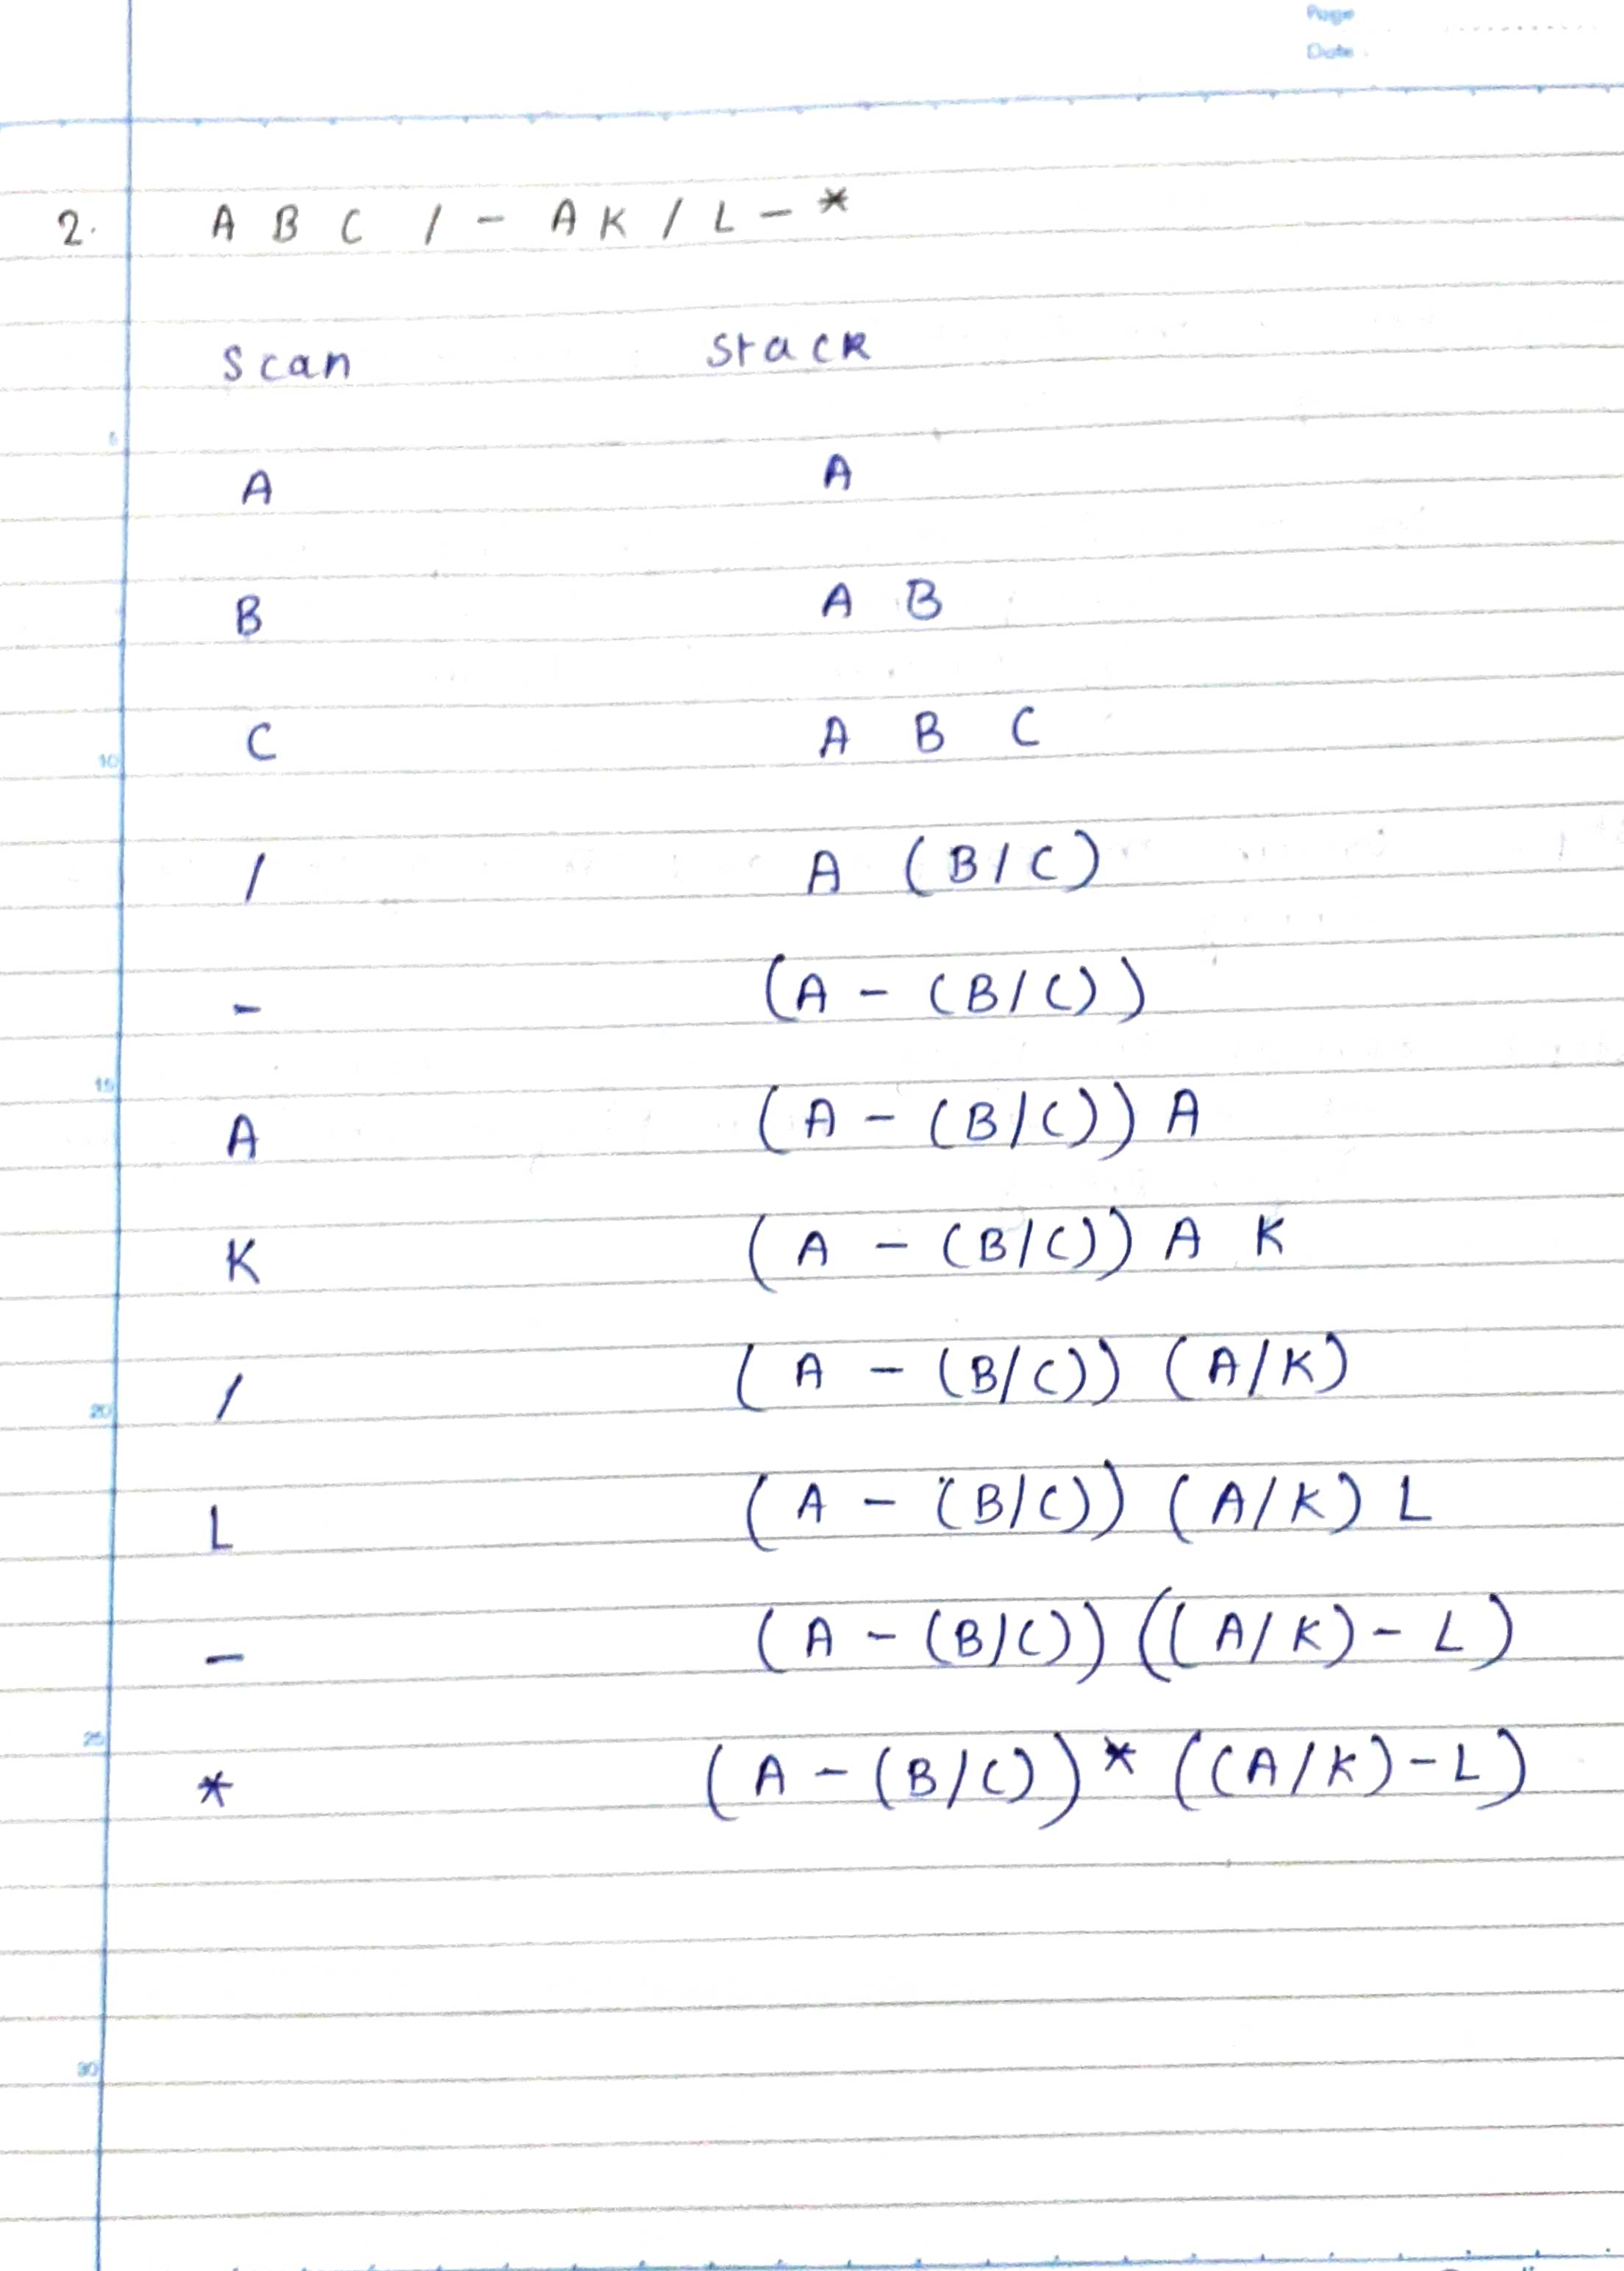 Page
Date
2. A B C / - A K / L - *
Scan Stack
5
A A
B A B
C A B C
10
/ A (B/C)
- (A - (B/C))
15
A (A - (B/C)) A
K (A - (B/C)) A K
/ (A - (B/C)) (A/K)
20
L (A - (B/C)) (A/K) L
- (A - (B/C)) ((A/K) - L)
25
* (A - (B/C)) * ((A/K) - L)
30